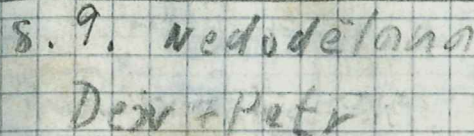 8. 9. Nedodělana
Dejv + Petr